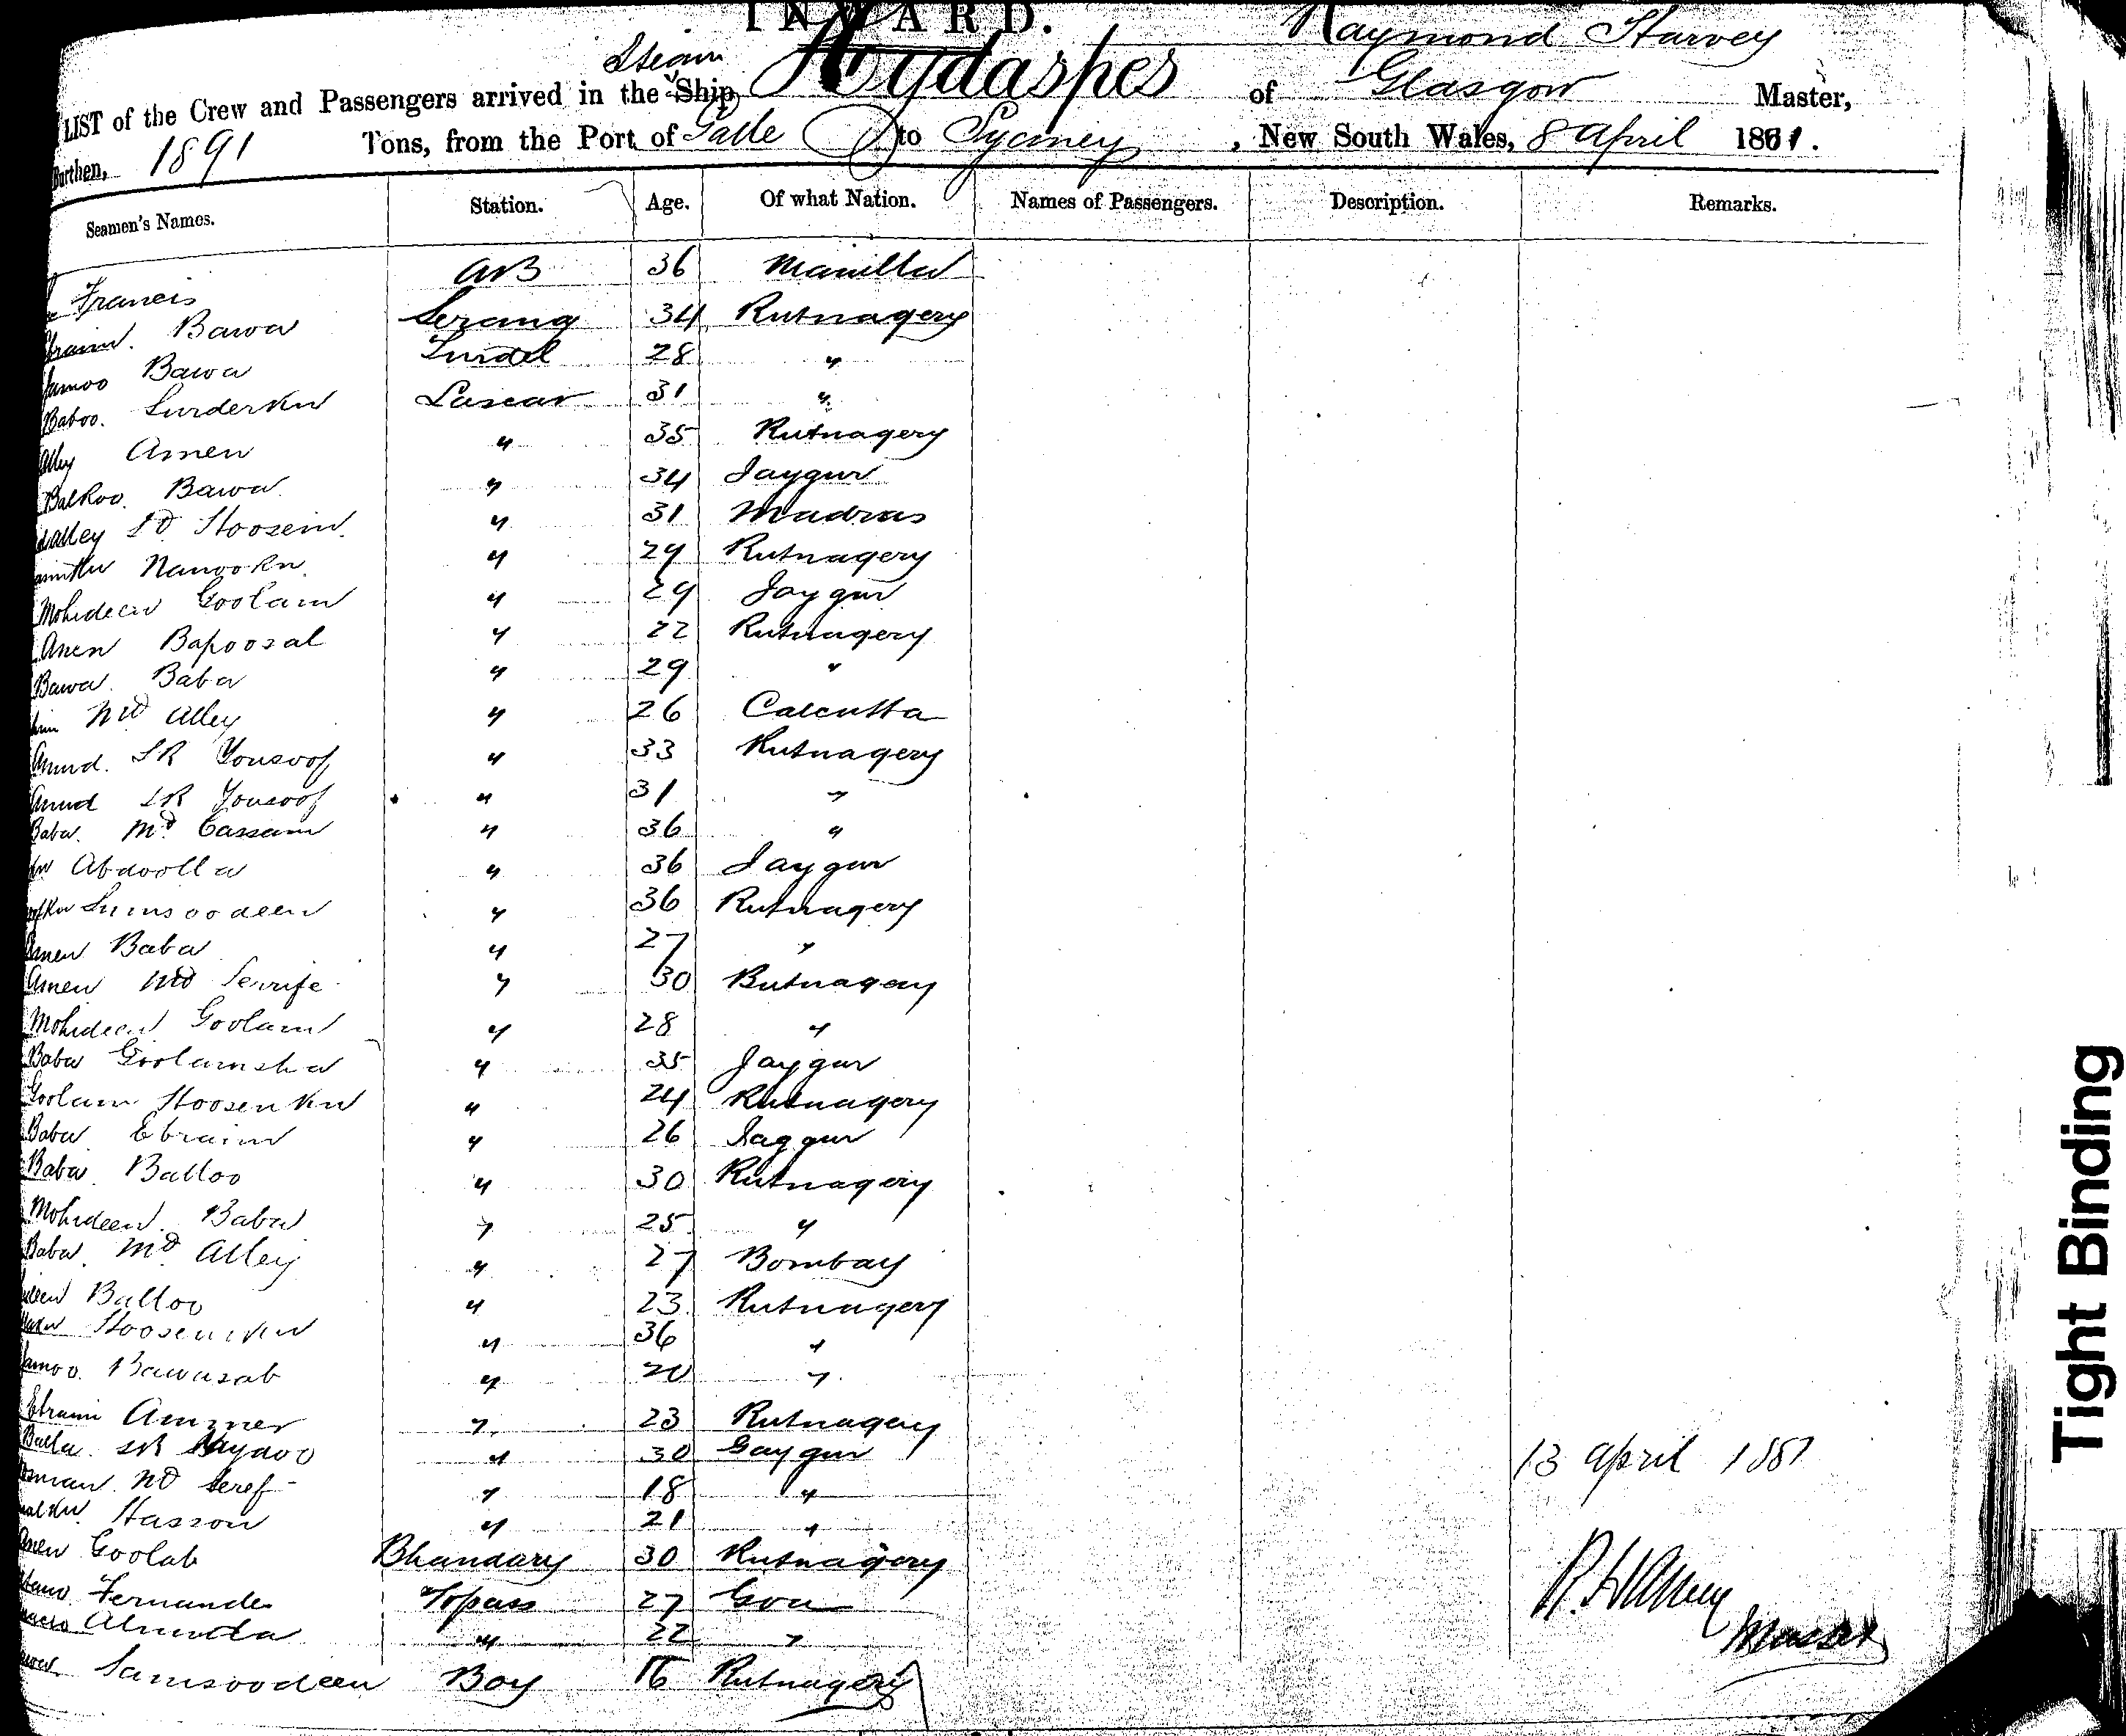 INWARD.
Raymond Harvey
Steam
LIST of the Crew and Passengers arrived in the Ship Hydaspes of Glasgow Master,
Burthen, 1891 Tons, from the Port of Galle to Sydney, New South Wales, 8 April 1881.
Seamen's Names. Station. Age. Of what Nation. Names of Passengers. Description. Remarks.
Francis AB 36 Manilla
Ebraim. Bawa Serang 34 Rutnagery
Bawa Tindel 28 "
Baboo. Surderkn Lascar 31 "
Alley Amen " 35 Rutnagery
Balkoo. Bawa " 34 Jaygur
Hoosein. " 31 Madras
Nanookn. " 29 Rutnagery
Mohideen Goolam " 29 Jaygur
Amen Bapoosal " 22 Rutnagery
Bawa. Baba " 29 "
Md Alley " 26 Calcutta
Amud. SR Yousoof " 33 Rutnagery
Amud SR Yousoof " 31 "
Baba. Md Cassam " 36 "
Abdoolla " 36 Jaygur
Sumsoodeen " 36 Rutnagery
Amen Baba " 27 "
Amen Md Serrife " 30 Rutnagery
Mohideen Goolam " 28 "
Baba Goolamsha " 35 Jaygur
Goolam Hoosenkn " 24 Rutnagery
Baba Ebraim " 26 Jaygur
Baba. Balloo " 30 Rutnagery
Mohideen. Baba " 25 "
Baba. Md Alley " 27 Bombay
Balloo " 23 Rutnagery
Hoosenkn " 36 "
Bawasab " 20 "
Ebraim " 23 Rutnagery
Balla. SR " 30 Jaygur 13 April 1881
Md Seref " 18 "
Hasson " 21 "
Amen Goolab Bhandary 30 Rutnagery
Fernandes Topass 27 Goa R. Harvey
Almeida " 22 " Master
Samsoodeen Boy 16 Rutnagery
Tight Binding